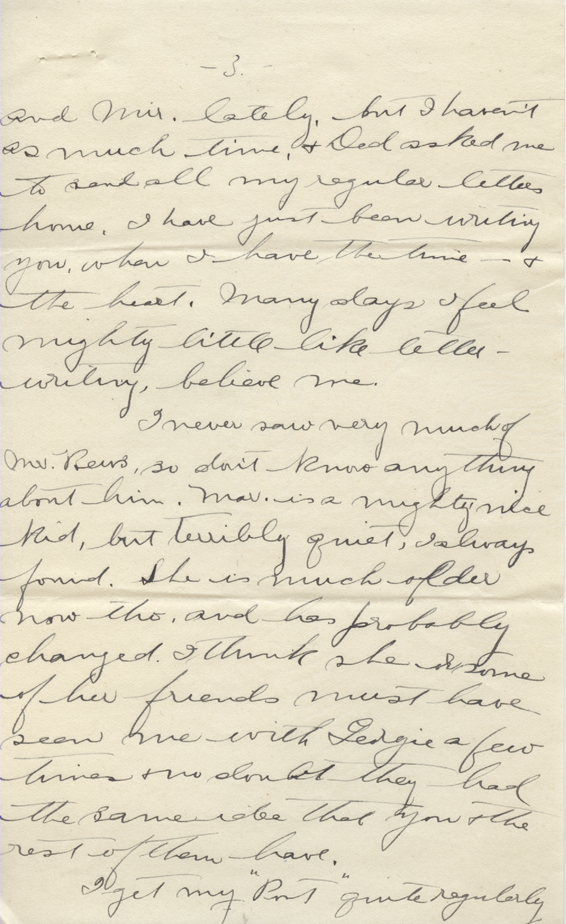 - 3. -
and Mir. lately, but I haven't
as much time, & Dad asked me
to send all my regular letters
home. I have just been writing
you, when I have the time - &
the heart. Many days I feel
mighty little like letter-
writing, believe me.
I never saw very much of
Mr. so don't know anything
about him. Mar. is a mighty nice
kid, but terribly quiet, I always
found. She is much older
now tho, and has probably
changed. I think she or some
of her friends must have
seen me with Georgie a few
times & no doubt they had
the same idea that you & the
rest of them have.
I get my "Post" quite regularly